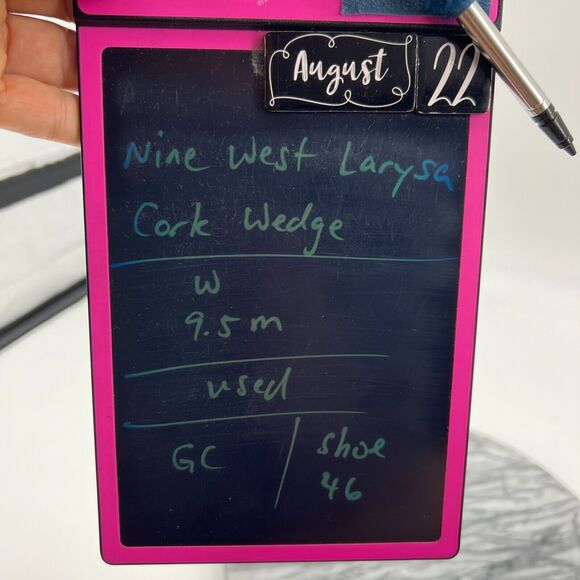 August 22
Nine West Larysa
Cork Wedge
W
9.5 m
used
GC / shoe
46